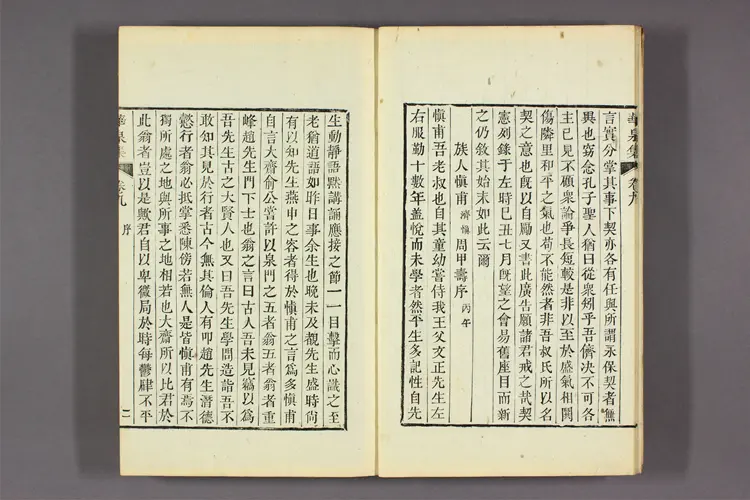 華泉集 卷九
言實分掌其事下契亦各有任與所謂永保契者無
異也竊念孔子聖人猶曰從衆矧乎吾儕决不可各
主已見不顧衆論爭長短較是非以至於盛氣相閧
傷隣里和平之氣也苟不能然者非吾叔氏所以名
契之意也旣以自勵又書此廣告願諸君戒之哉契
憲列錄于左時己丑七月旣望之會易舊座目而新
之仍敘其始末如此云爾
族人愼甫 濟愼 周甲壽序 丙午
愼甫吾老叔也自其童幼嘗侍我王父文正先生左
右服勤十數年盖悅而未學者然平生多記性自先
生動靜語默講誦應接之節一一目擊而心識之至
老猶道語如昨日事余生也晚未及覩先生盛時尙
有以知先生燕申之容者得於愼甫之言爲多愼甫
自言大齋俞公嘗許以泉門之五者翁五者翁者重
峰趙先生門下士也翁之言曰古人吾未見竊以爲
吾先生古之大賢人也又曰吾先生學問造詣吾不
敢知其見於行者古今無其倫人有叩趙先生潛德
懿行者翁必抵掌悉陳傍若無人是皆愼甫有焉不
獨所處之地與所事之地相若也大齋所以比君於
此翁者豈以是歟君自以卑微局於時每鬱肆不平
華泉集 卷九 序 二